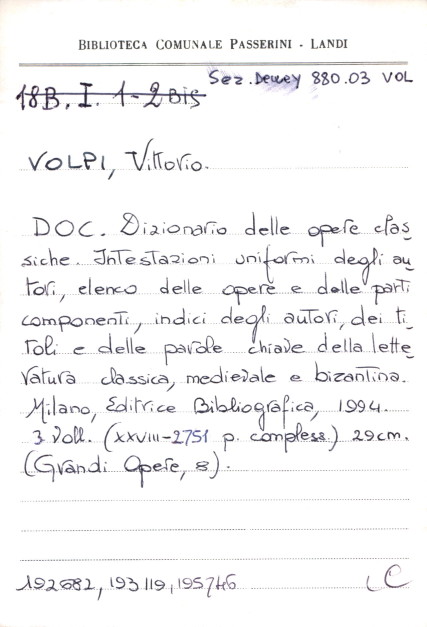 BIBLIOTECA COMUNALE PASSERINI - LANDI
Sez. Dewey 880.03 VOL
18B. I. 1-2 Bis
VOLPI, Vittorio.
DOC. Dizionario delle opere clas
siche. Intestazioni uniformi degli au
tori, elenco delle opere e delle parti
componenti, indici degli autori, dei ti
toli e delle parole chiave della lette
ratura classica, medievale e bizantina.
Milano, Editrice Bibliografica, 1994.
3 voll. (XXVIII-2751 p. compless.) 29 cm.
(Grandi Opere, 8).
192682, 193119, 195746